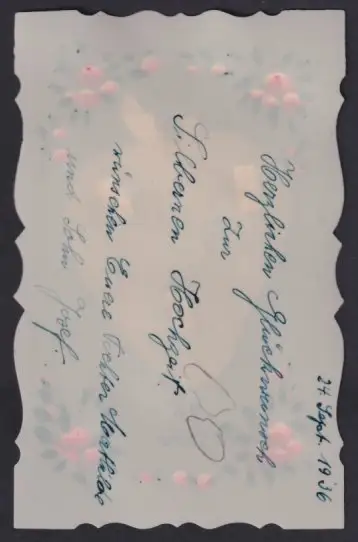 24. Sept. 1936
Herzlichen Glückwunsch
zur
Silbernen Hochzeit
wünschen Euere Tochter
und Sohn Josef.